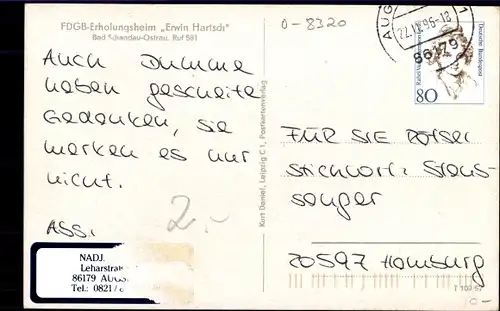 FDGB-Erholungsheim „Erwin Hartsch"
Bad Schandau-Ostrau, Ruf 581
0-8320
22. 96-18
86179
Deutsche Bundespost
80
Auch Dumme
haben gescheite
Gedanken, sie
merken es nur
nicht.
Ass.
2.-
NADJ.
Leharstraß
86179 AUGS
Tel.: 0821/8
Kurt Daniel, Leipzig C 1, Postkartenverlag
FÜR SIE RÄTSEL
Stichwort: Staus-
sauger
20597 Hamburg